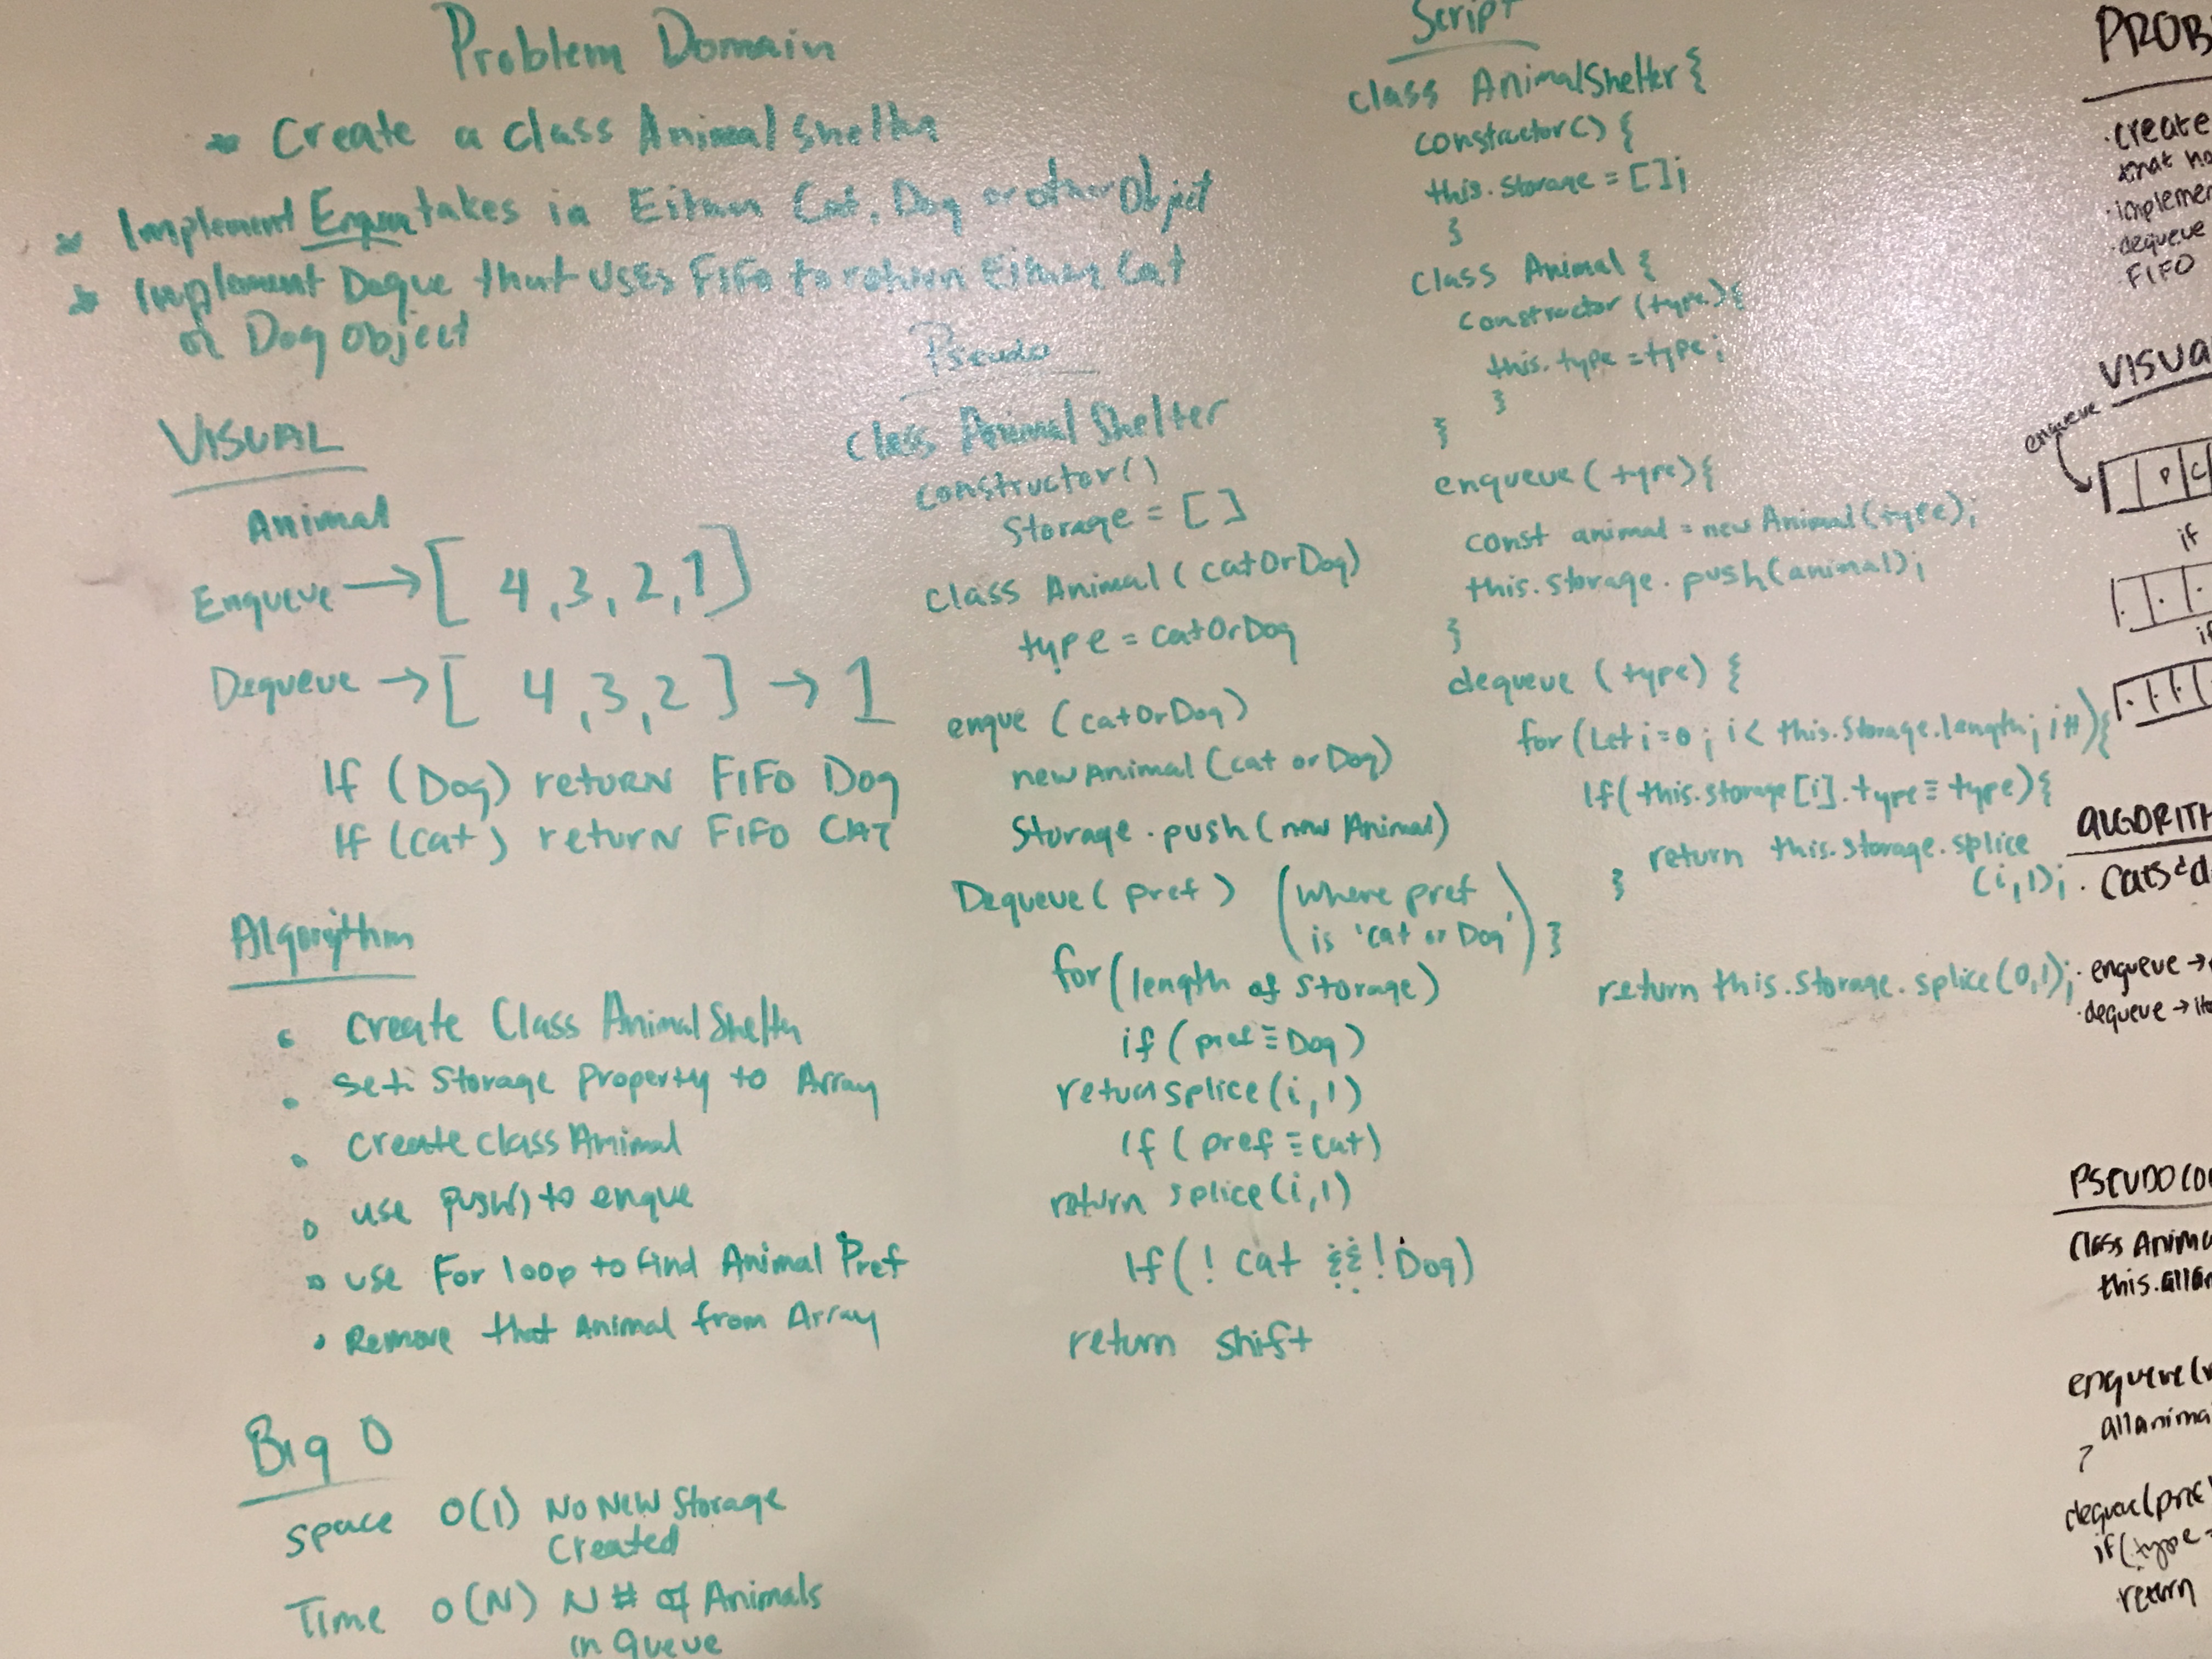 Problem Domain
* Create a class Animal Shelter
* Implement Enque takes in Either Cat, Dog or other Object
* Implement Deque that uses FIFO to return Either Cat
or Dog object
VISUAL
Animal
Enqueue → [ 4, 3, 2, 1 ]
Dequeue → [ 4, 3, 2 ] → 1
If (Dog) return FIFO Dog
If (cat) return FIFO CAT
Algorithm
• create Class Animal Shelter
• set: Storage Property to Array
• create class Animal
• use push() to enque
• use For loop to find Animal Pref
• Remove that Animal from Array
Big O
Space O(1) No New Storage
Created
Time O(N) N # of Animals
in Queue
Pseudo
Class Animal Shelter
constructor()
Storage = [ ]
class Animal ( catOrDog)
type = catOrDog
enque ( catOrDog)
new Animal (cat or Dog)
Storage.push (new Animal)
Dequeue ( pref ) (where pref
is 'cat or Dog')
for (length of storage)
if ( pref ≡ Dog )
return splice (i, 1)
If ( pref ≡ cat)
return splice (i, 1)
If ( ! cat && ! Dog)
return shift
Script
class AnimalShelter {
constructor() {
this.storage = [];
}
Class Animal {
constructor (type) {
this.type = type;
}
}
enqueue ( type) {
const animal = new Animal (type);
this.storage.push(animal);
}
dequeue (type) {
for (Let i = 0; i < this.storage.length; i++) {
If( this.storage [i].type ≡ type) {
return this.storage.splice
(i, 1);
}
}
return this.storage.splice (0,1);
PROB
• create
that ho
• implemen
• dequeue
FIFO
VISUA
enqueue
D C
if
if
ALGORITH
• cats & d
• enqueue →
• dequeue → ite
PSEUDO CO
Class Anima
this.allan
enqueue (
allanima
}
dequeue (pre
if (type =
return